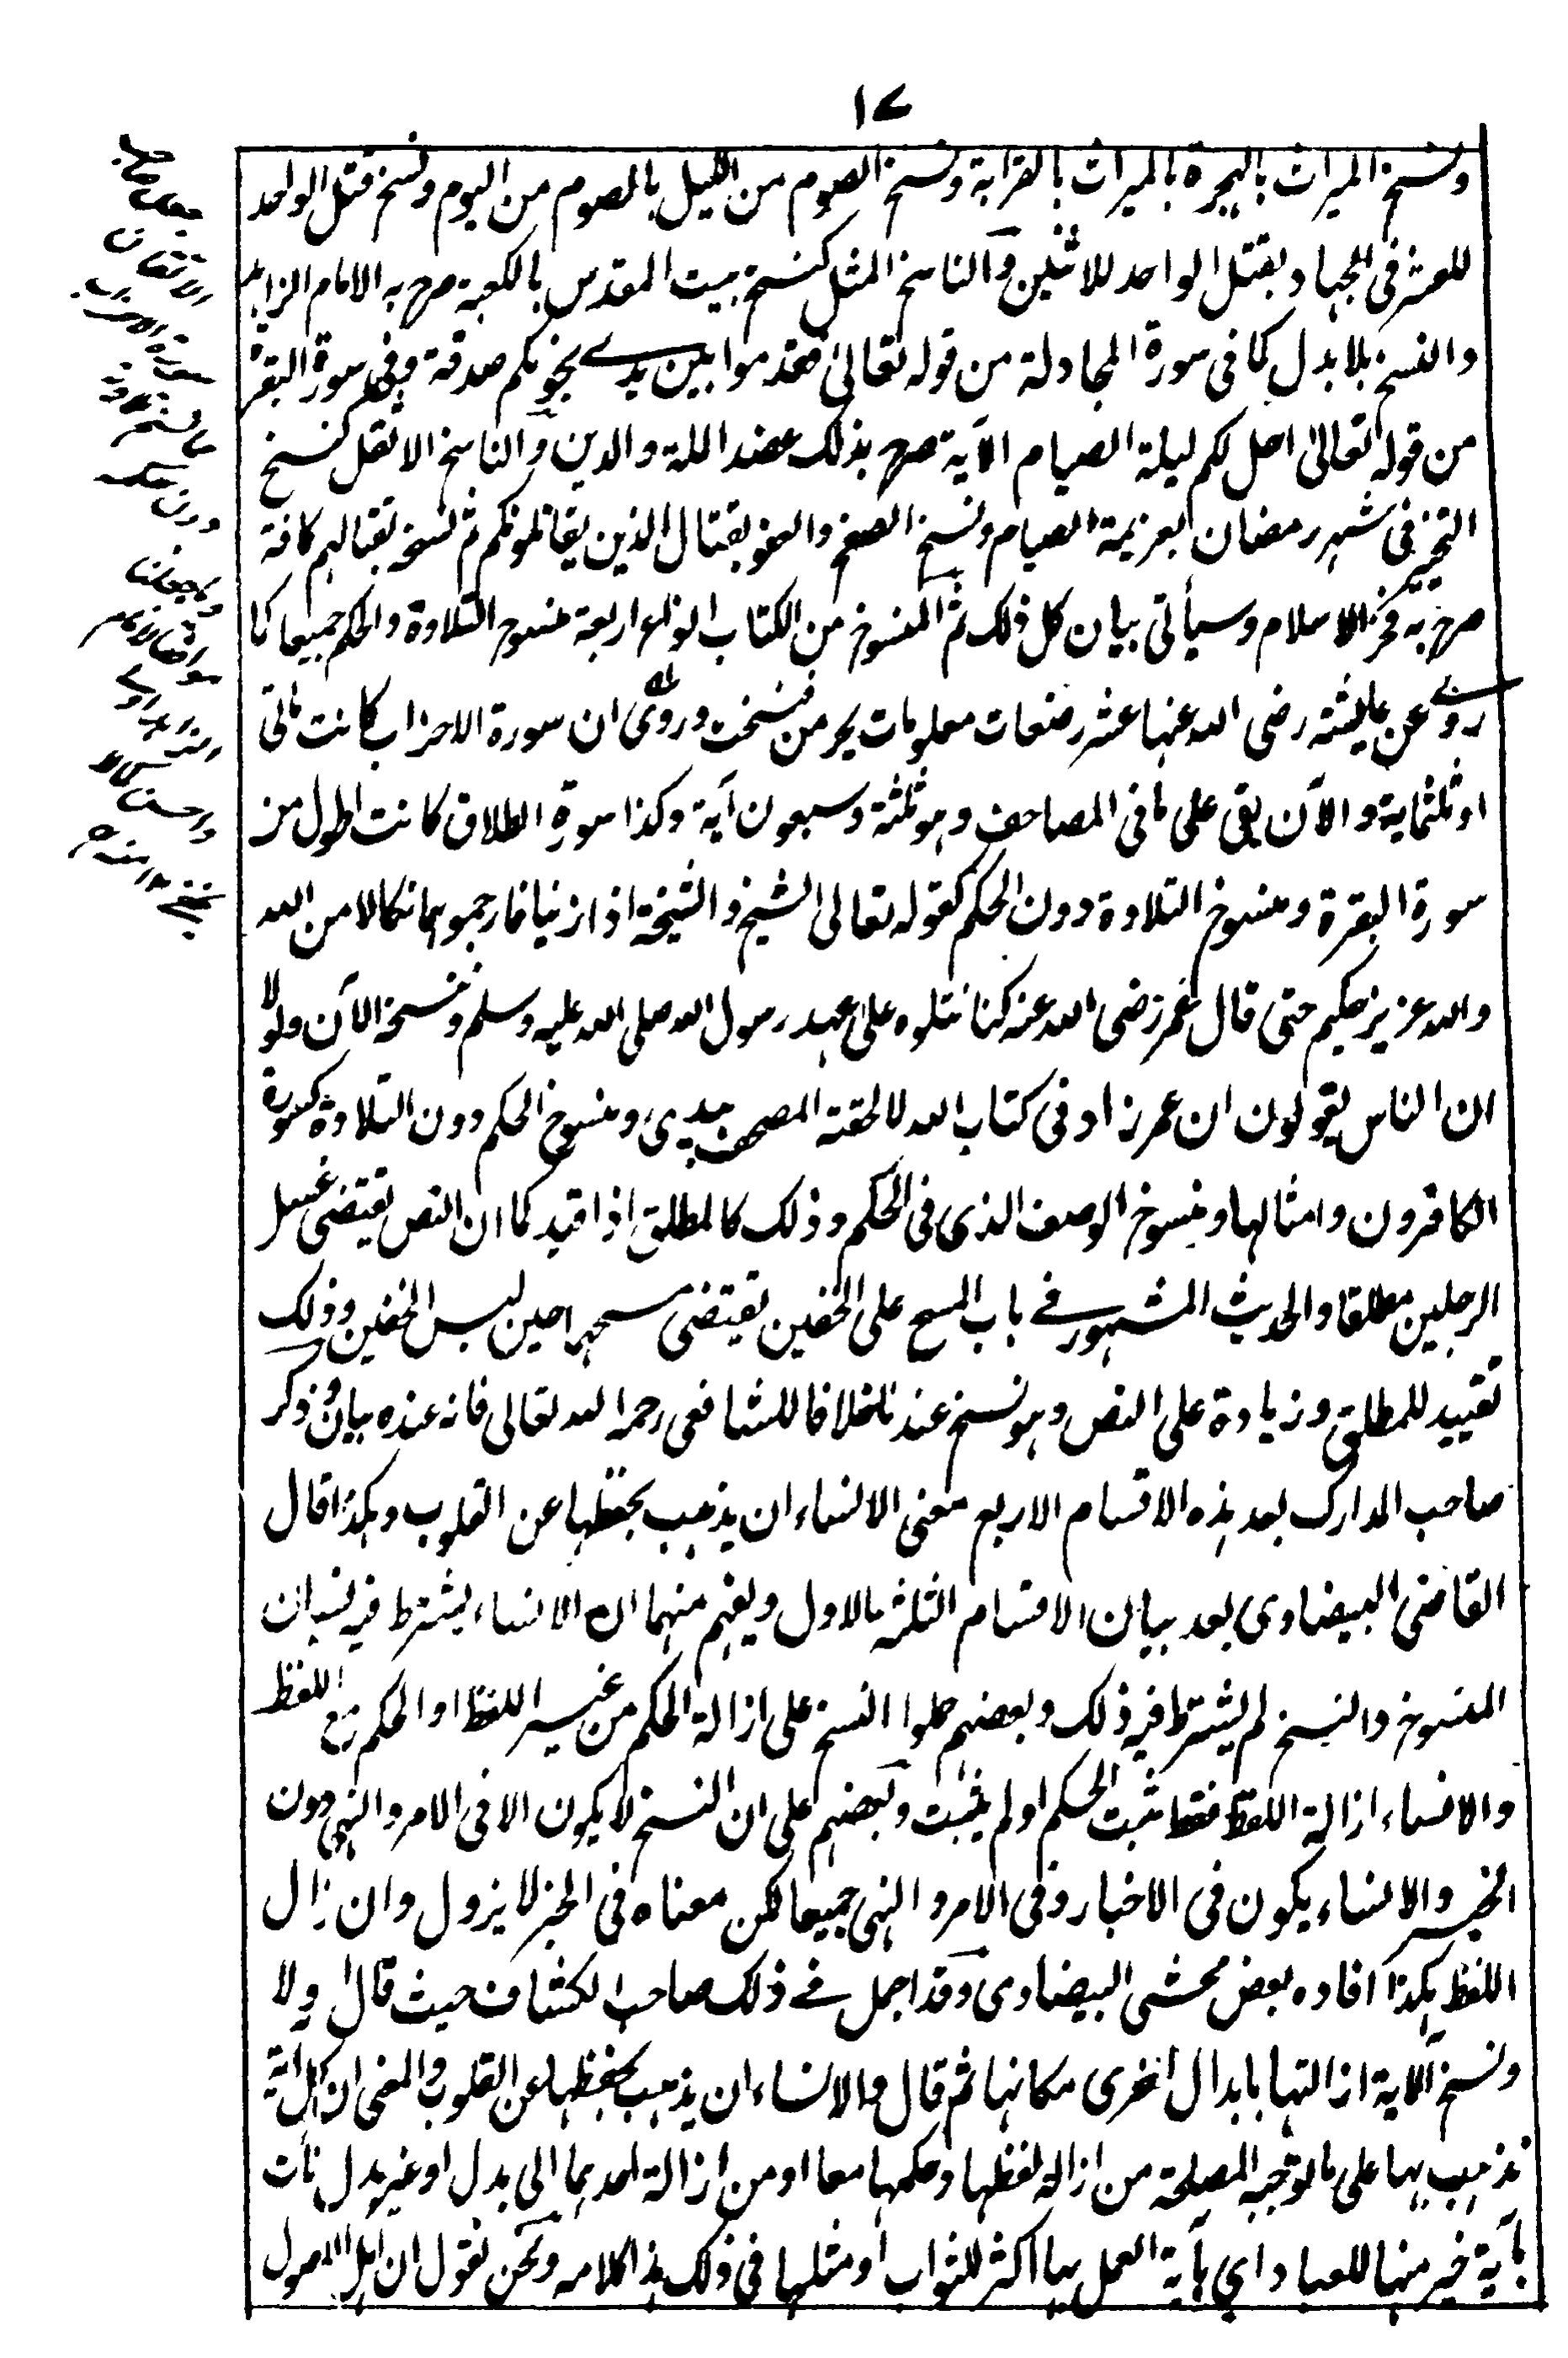 ١٧
ونسخ الميراث بالهجرة بالميراث بالقرابة ونسخ الصوم من الليل بالصوم من اليوم ونسخ قتل الواحد
للعشر فى الجهاد بقتل الواحد للاثنين والناسخ المثل كنسخ بيت المقدس بالكعبة صرح به الامام الزاهد
والنسخ بلا بدل كما فى سورة المجادلة من قوله تعالى فقدموا بين يدى نجوىكم صدقة وفى سورة البقرة
من قوله تعالى احل لكم ليلة الصيام الآية صرح بذلك عضد الملة والدين والناسخ الاثقل كنسخ
التخيير فى شهر رمضان بعزيمة الصيام ونسخ الصفح والعفو بقتال الذين يقاتلونكم ثم نسخه بقتالهم كافة
صرح به فخر الاسلام وسيأتى بيان كل ذلك ثم المنسوخ من الكتاب انواع اربعة منسوخ التلاوة والحكم جميعا كما
روى عن عايشة رضى الله عنها عشر رضعات معلومات يحرمن فنسخت وروى ان سورة الاحزاب كانت مائتى
او ثلثماية والآن بقى على ما فى المصاحف وهو ثلثة وسبعون آية وكذا سورة الطلاق كانت اطول من
سورة البقرة ومنسوخ التلاوة دون الحكم كقوله تعالى الشيخ والشيخة اذا زنيا فارجموهما نكالا من الله
والله عزيز حكيم حتى قال عمر رضى الله عنه كنا نتلوه على عهد رسول الله صلى الله عليه وسلم ونسخ الآن ولولا
ان الناس يقولون ان عمر زاد فى كتاب الله لالحقته المصحف بيدى ومنسوخ الحكم دون التلاوة كسورة
الكافرون وامثالها ومنسوخ الوصف الذى فى الحكم وذلك كالمطلق اذا قيد كما ان النص يقتضى غسل
الرجلين مطلقا والحديث المشهور فى باب المسح على الخفين يقتضى مسحهما حين لبس الخفين وذلك
تقييد للمطلق وزيادة على النص وهو نسخ عندنا خلافا للشافعى رحمه الله تعالى فانه عنده بيان وذكر
صاحب المدارك بعد هذه الاقسام الاربع معنى الانساء ان يذهب بحفظها عن القلوب وهكذا قال
القاضى البيضاوى بعد بيان الاقسام الثلثة بالاول ويفهم منهما ان الانساء يشترط فيه نسيان
المنسوخ والنسخ لم يشترط فيه ذلك وبعضهم حملوا النسخ على ازالة الحكم من غير اللفظ او الحكم مع اللفظ
والانساء ازالة اللفظ فقط ثبت الحكم او لم يثبت وبعضهم على ان النسخ لا يكون الا فى الامر والنهى دون
الخبر والانساء يكون فى الاخبار وفى الامر والنهى جميعا لكن معناه فى الخبر لا يزول وان زال
اللفظ هكذا افاده بعض محشى البيضاوى وقد اجمل فى ذلك صاحب الكشاف حيث قال اولا
ونسخ الآية ازالتها بابدال اخرى مكانها ثم قال والانساء ان يذهب بحفظها عن القلوب والمعنى ان كل آية
نذهب بها على ما توجبه المصلحة من ازالة لفظها وحكمها معا او من ازالة احدهما الى بدل او غير بدل نات
بآية خير منها للعباد اى بآية العمل بها اكثر للثواب او مثلها فى ذلك هذا كلامه ونحن نقول ان اهل الاصول